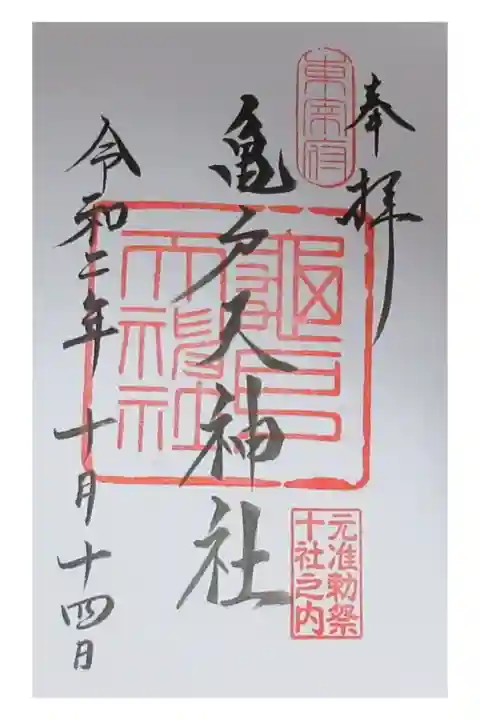 奉拝
東宰府
亀戸天神社
亀戸天神社
元准勅祭
十社之内
令和二年十月十四日